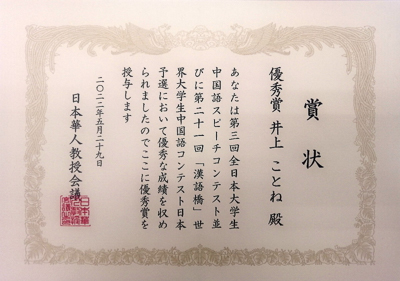 賞状
優秀賞 井上 ことね 殿
あなたは第三回全日本大学生
中国語スピーチコンテスト並
びに第二十一回「漢語橋」世
界大学生中国語コンテスト日本
予選において優秀な成績を収め
られましたのでここに優秀賞を
授与します
二〇二二年五月二十九日
日本華人教授会議